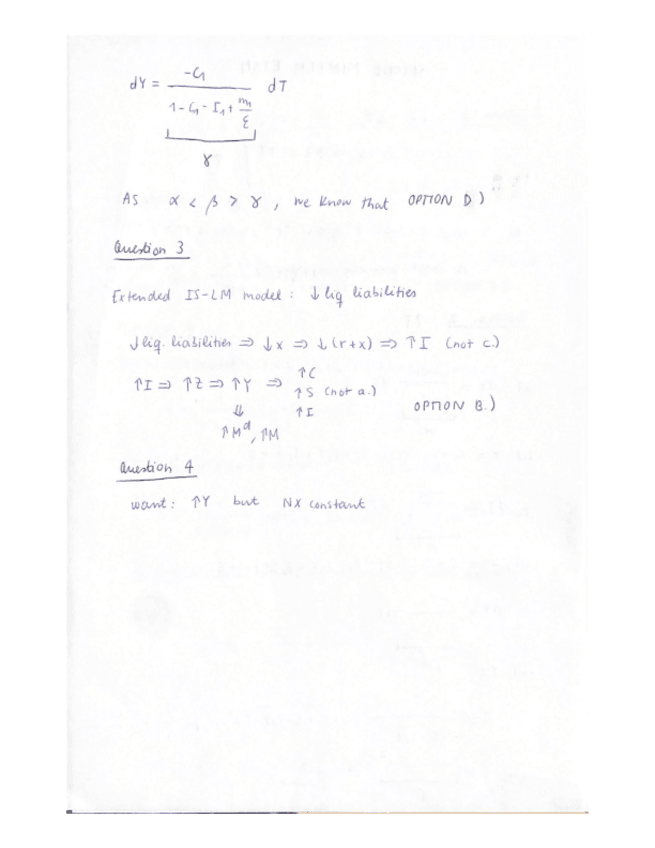 dY = -C₁ / (1 - C₁ - I₁ + m₁/ε) dT
γ
AS α < β > γ, we know that OPTION D)
Question 3
Extended IS-LM model: ↓ liq liabilities
↓ liq. liabilities ⇒ ↓x ⇒ ↓(r+x) ⇒ ↑I (not c.)
↑I ⇒ ↑Z ⇒ ↑Y ⇒ ↑C
↑S (not a.)
⇓ ↑I OPTION B.)
↑Mᵈ, ↑M
Question 4
want: ↑Y but NX constant